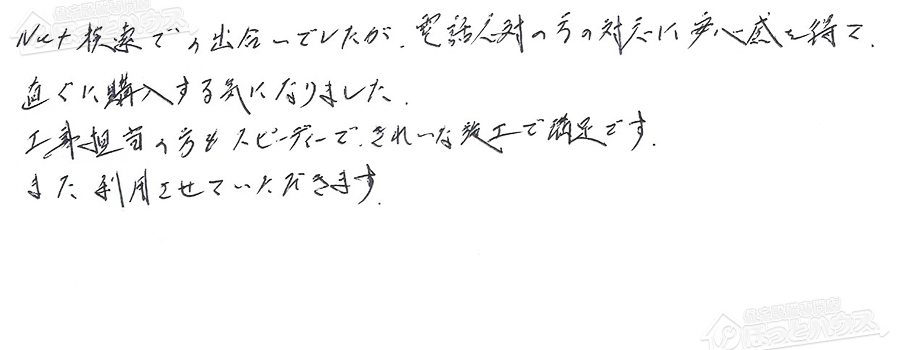 Net検索での出合いでしたが、電話応対の方の対応に安心感を得て、
直ぐに購入する気になりました。
工事担当の方もスピーディーで、きれいな施工で満足です。
また利用させていただきます。
住宅設備専門店
ほっとハウス
住宅設備専門店
ほっとハウス